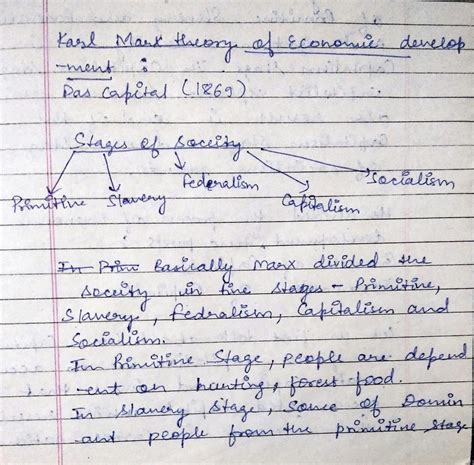 Karl Marx theory of Economic develop
-ment :
Das Capital (1869)
Stages of Soceity
Primitine Slavery Federalism Capitalism Socialism
In Prim Basically Marx divided the
soceity in fine stages - Primitine,
Slavery, Federalism, Capitalism and
Socialism.
In Primitine Stage, people are depend
-ent on hunting, forest food.
In Slavery Stage, some of Domin
ant people from the primitine stage